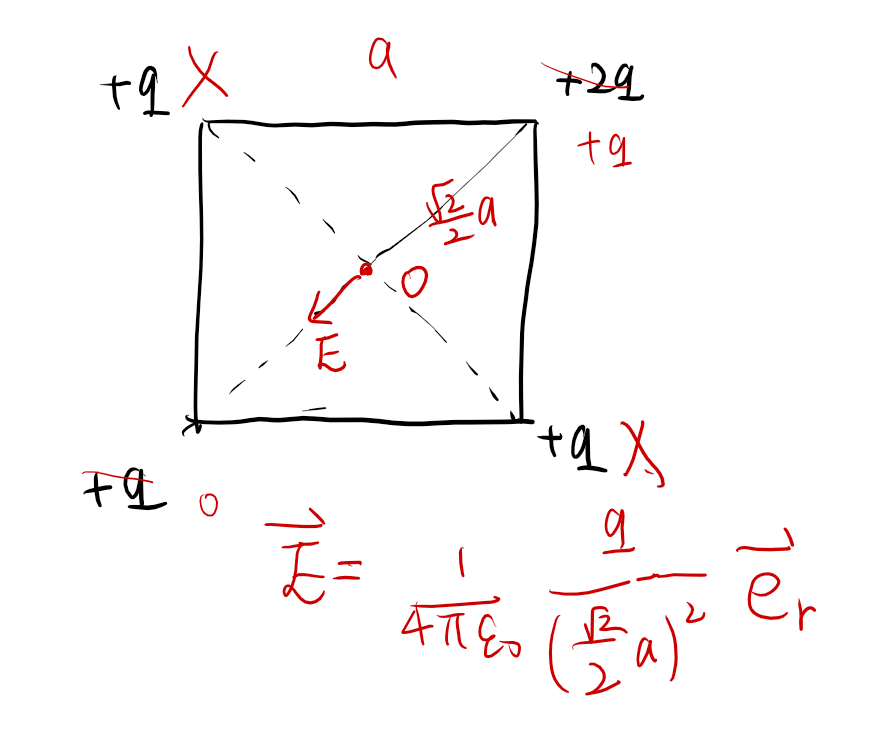 a
+q X
+2q
+q
√2/2 a
O
E
+q X
+q 0
E⃗ = 1/(4πε₀) q/(√2/2 a)² e⃗ᵣ